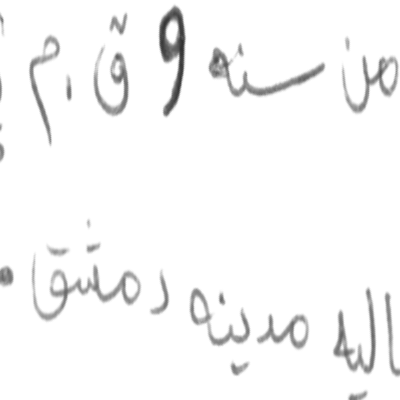 من سنه ٩ ق.م
اليه مدينه دمشق .